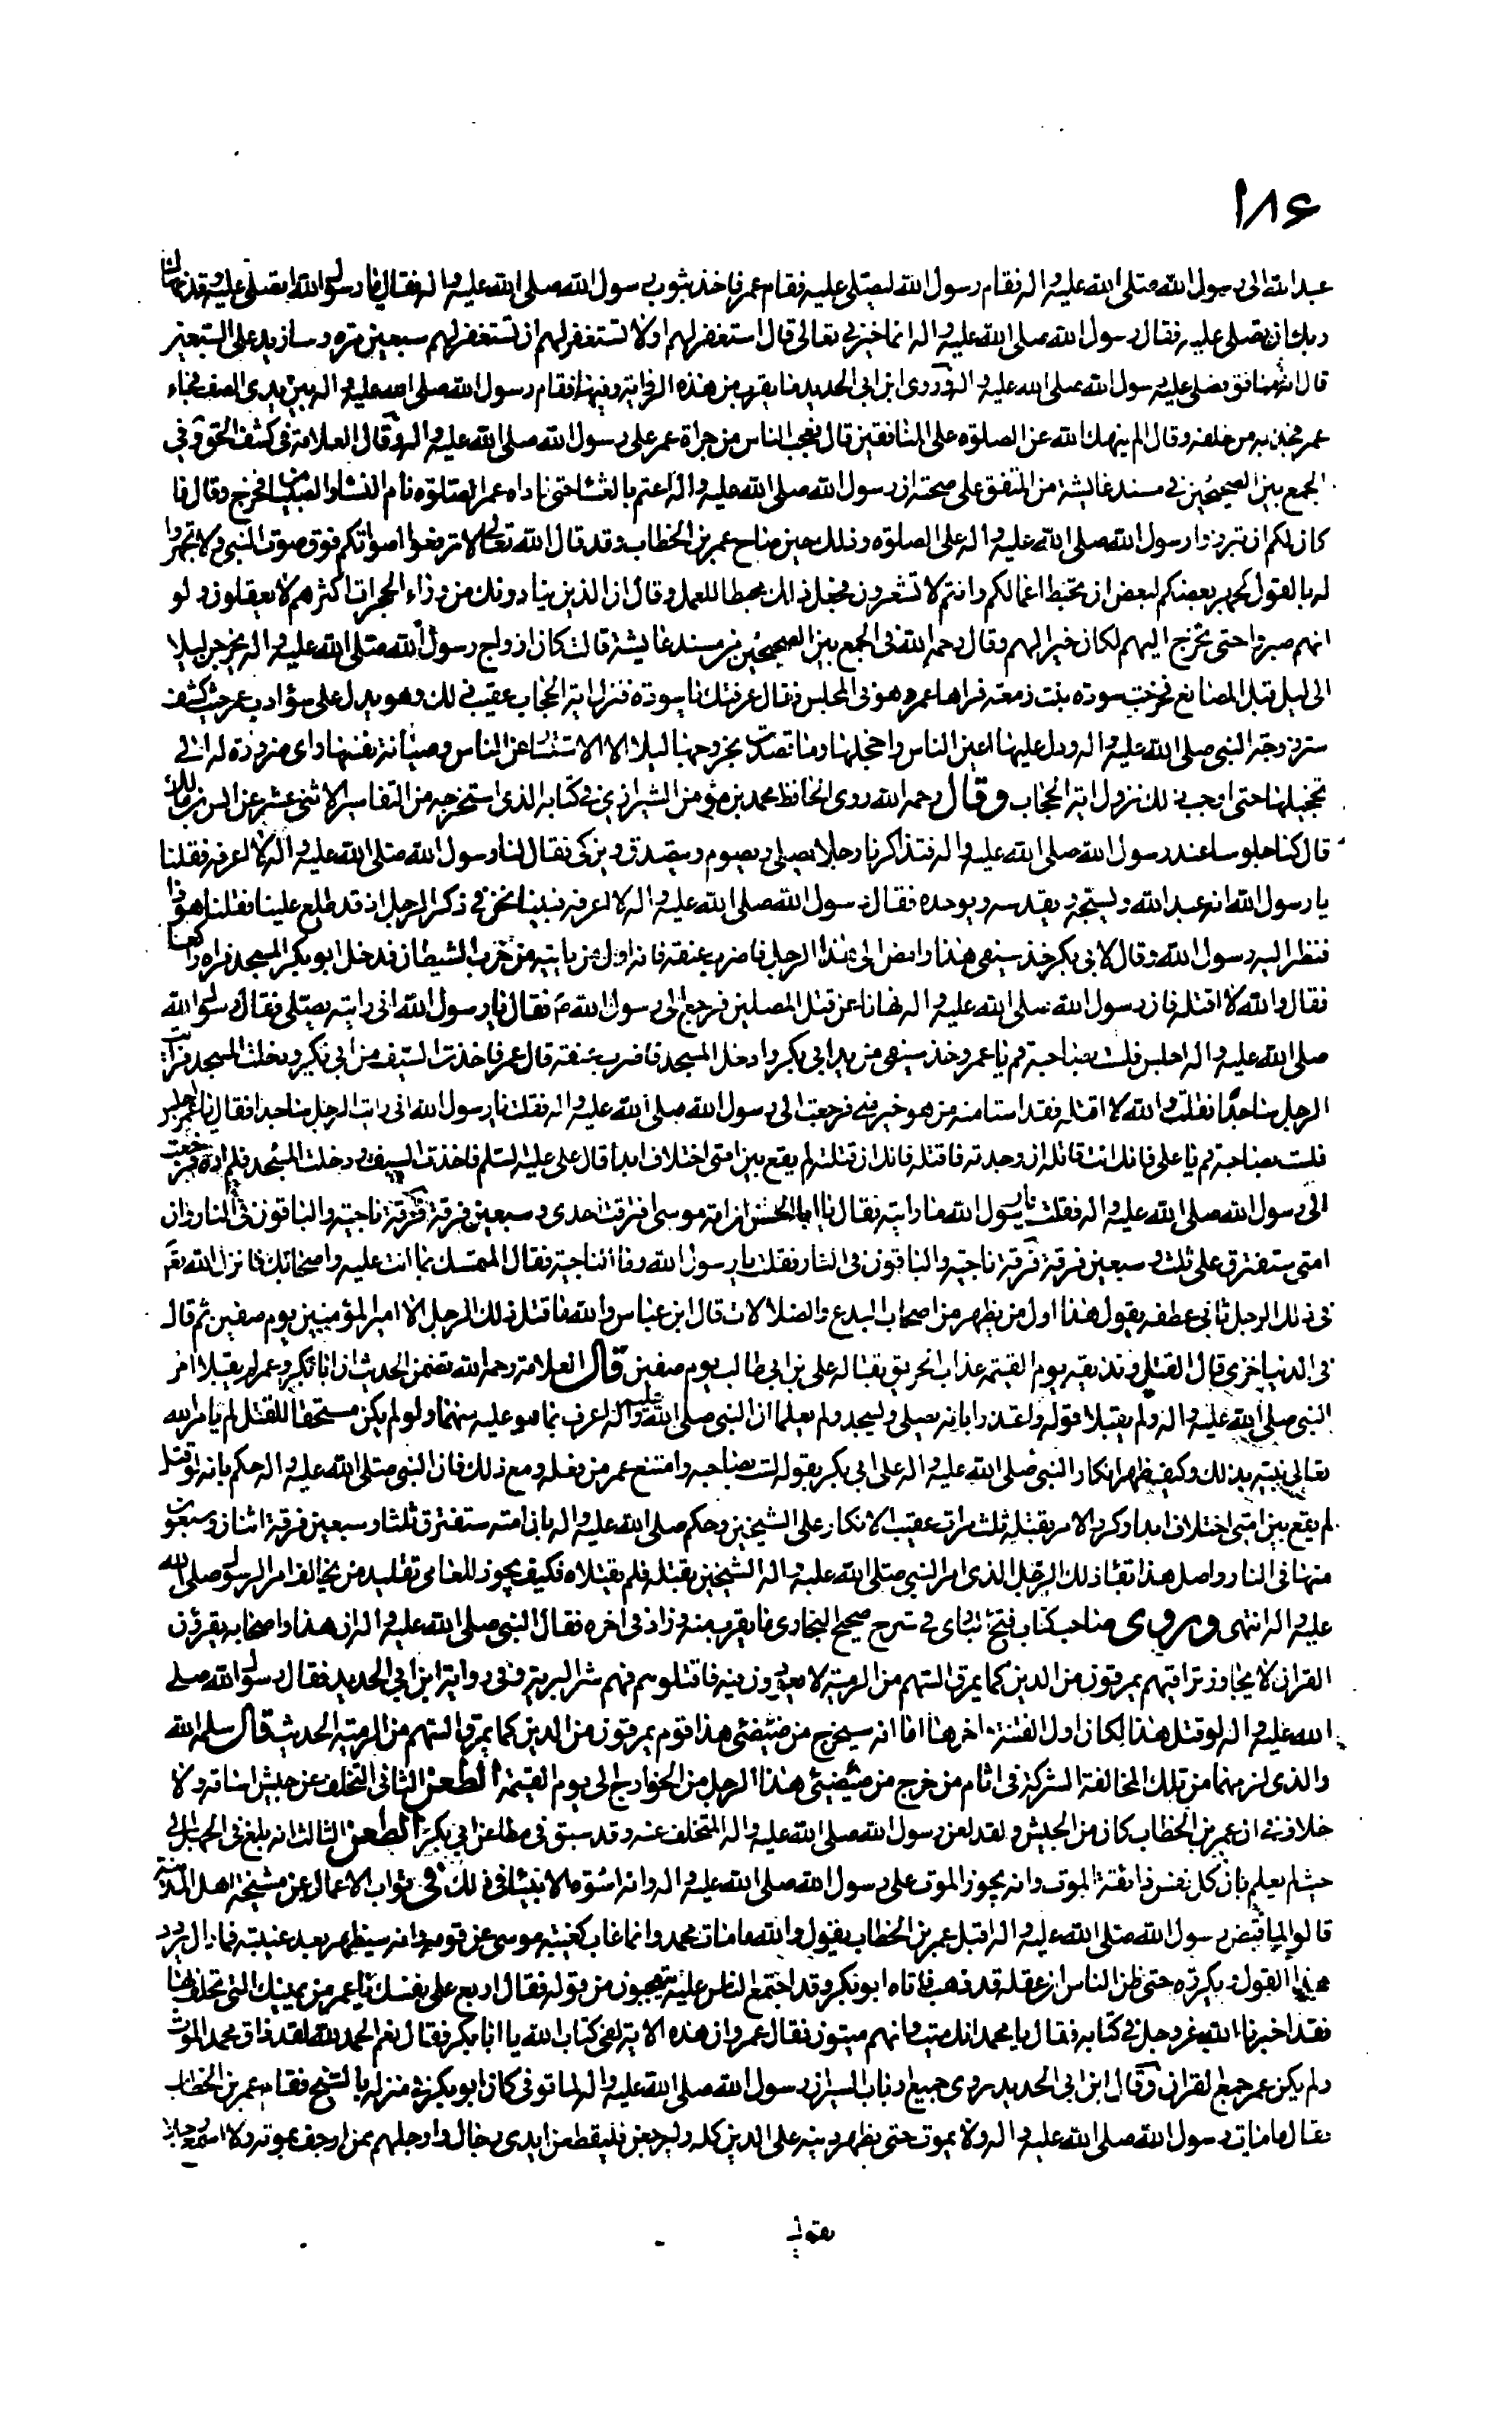 ١٨۶
عبد الله الى رسول الله صلى الله عليه واله فقام رسول الله ليصلى عليه فقام عمر فاخذ بثوب رسول الله صلى الله عليه واله فقال يا رسول الله اتصلى عليه وقد نهاك
ربك ان تصلى عليه فقال رسول الله صلى الله عليه واله انما خيرنى تعالى قال استغفر لهم اولا تستغفر لهم ان تستغفر لهم سبعين مرة وسازيد على السبعين
قال انه منافق فصلى عليه رسول الله صلى الله عليه واله وروى ابن ابى الحديد ما يقرب من هذه الرواية وفيها فقام رسول الله صلى الله عليه واله بين يدى الصف فجاء
عمر فجذبه من خلفه وقال الم ينهك الله عن الصلوة على المنافقين قال فعجب الناس من جراة عمر على رسول الله صلى الله عليه واله وقال العلامة فى كشف الحق وفى
الجمع بين الصحيحين فى مسند عايشة من المتفق على صحته ان رسول الله صلى الله عليه واله اعتم بالعشا حتى ناداه عمر الصلوة نام النساء والصبيان فخرج وقال ما
كان لكم ان تبرزوا رسول الله صلى الله عليه واله على الصلوة وذلك حين صاح عمر بن الخطاب وقد قال الله تعالى لا ترفعوا اصواتكم فوق صوت النبى ولا تجهروا
له بالقول كجهر بعضكم لبعض ان تحبط اعمالكم وانتم لا تشعرون فجعل ذلك محبطا للعمل وقال ان الذين ينادونك من وراء الحجرات اكثرهم لا يعقلون ولو
انهم صبروا حتى تخرج اليهم لكان خيرا لهم وقال رحمه الله فى الجمع بين الصحيحين من مسند عايشة قالت كان ازواج رسول الله صلى الله عليه واله يخرجن ليلا
الى ليل قبل المصانع فخرجت سودة بنت زمعة فراها عمر وهو فى المجلس فقال عرفتك يا سودة فنزل اية الحجاب عقيب ذلك وهو يدل على سوء ادب عمر حيث كشف
ستر زوجة النبى صلى الله عليه واله ودل عليها اعين الناس واخجلها وما قصدت بخروجها ليلا الا الاستتار عن الناس وصيانة نفسها واى ضرورة له الى
تخجيلها حتى اوجب ذلك نزول اية الحجاب وقال رحمه الله روى الحافظ محمد بن مؤمن الشيرازى فى كتابه الذى استخرجه من التفاسير الاثنى عشر عن انس بن مالك
قال كنا جلوسا عند رسول الله صلى الله عليه واله فتذاكرنا رجلا يصلى ويصوم ويتصدق ويزكى فقال لنا رسول الله صلى الله عليه واله لا اعرفه فقلنا
يا رسول الله انه عبد الله ويسبحه ويقدسه ويوحده فقال رسول الله صلى الله عليه واله لا اعرفه فبينا نحن فى ذكر الرجل اذ قد طلع علينا فقلنا هو ذا
فنظر اليه رسول الله وقال لابى بكر خذ سيفى هذا وامض الى هذا الرجل فاضرب عنقه فانه اول من ياتيه من حزب الشيطان فدخل ابو بكر المسجد فراه راكعا
فقال والله لا اقتله فان رسول الله صلى الله عليه واله نهانا عن قتل المصلين فرجع الى رسول الله ص فقال يا رسول الله انى رايته يصلى فقال رسول الله
صلى الله عليه واله اجلس فلست بصاحبه قم يا عمر وخذ سيفى من يد ابى بكر وادخل المسجد فاضرب عنقه قال عمر فاخذت السيف من ابى بكر ودخلت المسجد فرايت
الرجل ساجدا فقلت والله لا اقتله فقد استامنه من هو خير منى فرجعت الى رسول الله صلى الله عليه واله فقلت يا رسول الله انى رايت الرجل ساجدا فقال يا عمر اجلس
فلست بصاحبه قم يا على فانك انت قاتله ان وجدته فاقتله فانك ان قتلته لم يقع بين امتى اختلاف ابدا قال على عليه السلم فاخذت السيف ودخلت المسجد فلم اره فرجعت
الى رسول الله صلى الله عليه واله فقلت يا رسول الله ما رايته فقال يا ابا الحسن ان امة موسى افترقت احدى وسبعين فرقة فرقة ناجية والباقون فى النار وان
امتى ستفترق على ثلث وسبعين فرقة فرقة ناجية والباقون فى النار فقلت يا رسول الله وما الناجية فقال المتمسك بما انت عليه واصحابك فانزل الله تعالى
فى ذلك الرجل ثانى عطفه يقول هذا اول من يظهر من اصحاب البدع والضلالات قال ابن عباس والله ما قتل ذلك الرجل الا امير المؤمنين يوم صفين ثم قال
فى الدنيا خزى قال القتل ونذيقه يوم القيمة عذاب الحريق بقتاله على بن ابى طالب يوم صفين قال العلامة رحمه الله تضمن الحديث ان ابا بكر وعمر لم يقبلا امر
النبى صلى الله عليه واله ولم يقبلا قوله واعتذرا بانه يصلى ويسجد ولم يعلما ان النبى صلى الله عليه واله اعرف بما هو عليه منهما ولو لم يكن مستحقا للقتل لم يامر الله
تعالى نبيه بذلك وكيف ظهر انكار النبى صلى الله عليه واله على ابى بكر بقوله لست بصاحبه وامتنع عمر من قتله ومع ذلك فان النبى صلى الله عليه واله حكم بانه لو قتل
لم يقع بين امتى اختلاف ابدا وكرر الامر بقتله ثلث مرات عقيب الانكار على الشيخين وحكم صلى الله عليه واله بان امته ستفترق ثلثا وسبعين فرقة اثنان وسبعون
منها فى النار واصل هذا بقاء ذلك الرجل الذى امر النبى صلى الله عليه واله الشيخين بقتله فلم يقتلاه فكيف يجوز للعامى تقليد من يخالف امر الرسول صلى الله
عليه واله انتهى وروى صاحب كتاب فتح البارى فى شرح صحيح البخارى ما يقرب منه وزاد فى اخره فقال النبى صلى الله عليه واله ان هذا واصحابه يقرؤن
القران لا يجاوز تراقيهم يمرقون من الدين كما يمرق السهم من الرمية لا يعودون فيه فاقتلوهم فهم شر البرية وفى رواية ابن ابى الحديد فقال رسول الله صلى
الله عليه واله لو قتل هذا لكان اول الفتنة واخرها اما انه سيخرج من ضئضئى هذا قوم يمرقون من الدين كما يمرق السهم من الرمية الحديث قال سلمه الله
والذى لزمهما من تلك المخالفة الشركة فى اثام من خرج من ضئضئى هذا الرجل من الخوارج الى يوم القيمة الطعن الثانى التخلف عن جيش اسامة ولا
خلاف فى ان عمر بن الخطاب كان من الجيش ولقد لعن رسول الله صلى الله عليه واله المتخلف عنه وقد سبق فى مطاعن ابى بكر الطعن الثالث انه بلغ فى الجهل الى
حيث لم يعلم بان كل نفس ذائقة الموت وانه يجوز الموت على رسول الله صلى الله عليه واله وانه اسوة الانبياء فى ذلك فى ثواب الاعمال عن مشيخة اهل المدينة
قالوا لما قبض رسول الله صلى الله عليه واله اقبل عمر بن الخطاب يقول والله ما مات محمد وانما غاب كغيبة موسى عن قومه وانه سيظهر بعد غيبته فما زال يردد
هذا القول ويكرره حتى ظن الناس ان عقله قد ذهب فاتاه ابو بكر وقد اجتمع الناس عليه يتعجبون من قوله فقال اربع على نفسك يا عمر من يمينك التى تحلف بها
فقد اخبرنا الله عز وجل فى كتابه فقال يا محمد انك ميت وانهم ميتون فقال عمر وان هذه الاية لفى كتاب الله يا ابا بكر فقال نعم الحمد لله لقد ذاق محمد الموت
ولم يكن عمر جمع القران وقال ابن ابى الحديد روى جميع ارباب السير ان رسول الله صلى الله عليه واله لما توفى كان ابو بكر فى منزله بالسنح فقام عمر بن الخطاب
فقال ما مات رسول الله صلى الله عليه واله ولا يموت حتى يظهر دينه على الدين كله وليرجعن فليقطعن ايدى رجال وارجلهم ممن ارجف بموته ولا اسمع رجلا
يقول